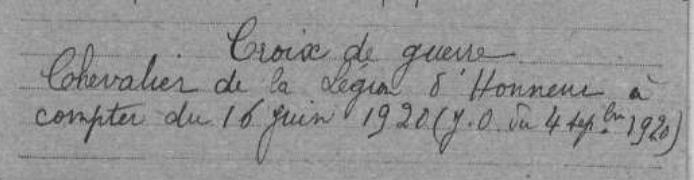 Croix de guerre
Chevalier de la Légion d'Honneur à
compter du 16 juin 1920 (J.O. du 4 sep.bre 1920)